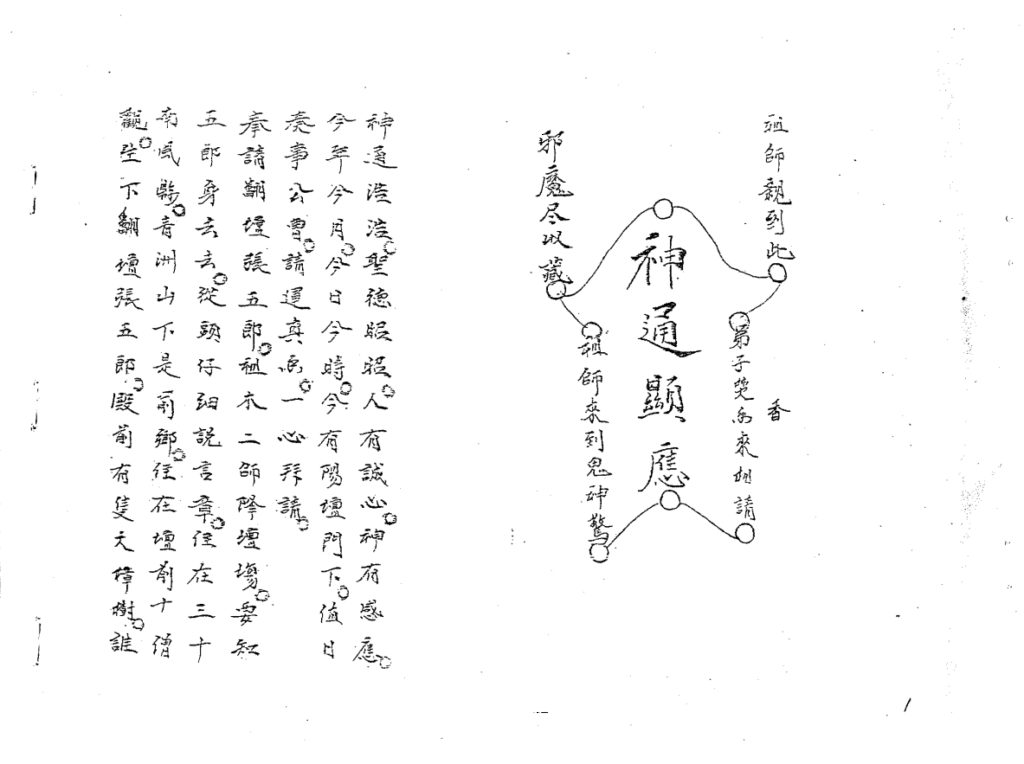 祖師親到此
香
弟子焚香來相請
神通顯應
祖師來到鬼神驚
邪魔尽收藏
神通浩浩。聖德昭昭。人有誠心。神有感應。
今年今月。今日今時。今有陽壇門下。值日
奏事公曹。請運真香。一心拜請。
奉請翻壇張五郎。祖本二師降壇場。要知
五郎身去去。從頭仔細說言章。住在三十
南風縣。青洲山下是前鄉。住在壇前十僧
觀。坐下翻壇張五郎。殿前有隻大樟樹。誰
1